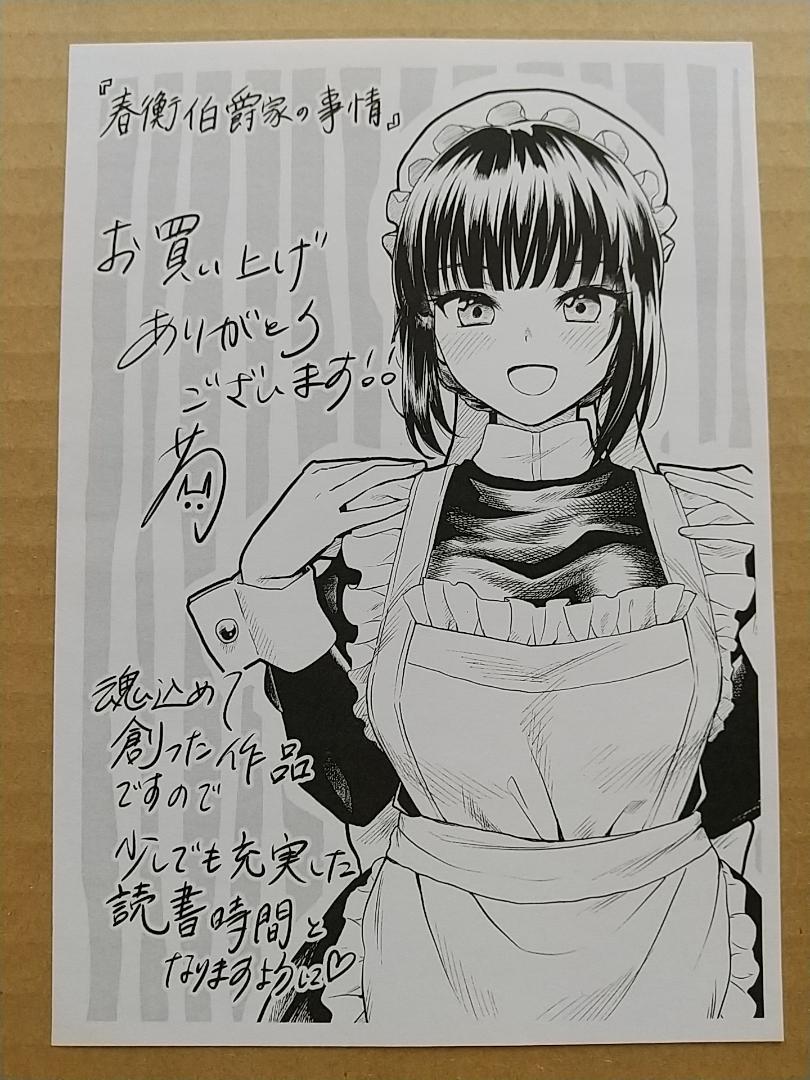 『春衡伯爵家の事情』
お買い上げ
ありがとう
ございます!!
魂込めて
創った作品
ですので
少しでも充実した
読書時間と
なりますように♡